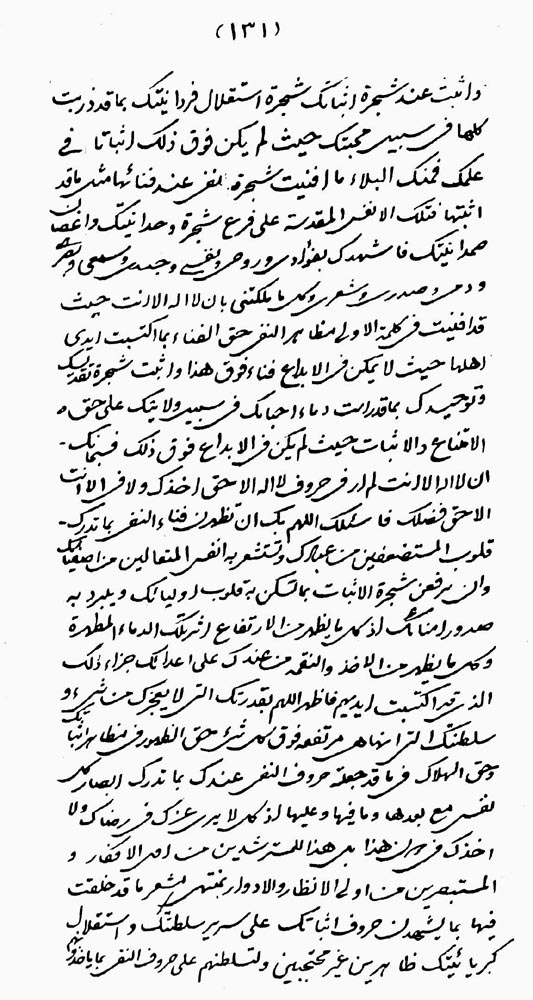 (١٣١)
واثبت عند شجرة اثباتك شجرة استقلال فردانيتك بما قد ذربت
كلها فى سبيل محبتك حيث لم يكن فوق ذلك اثباتا فى
علمك فمنك البلاء ما افنيت شجرة النفى عند فنائها مثل ما قد
اثبتها فتلك الانفس المقدسة على فرع شجرة وحدانيتك واغصان
صمدانيتك فاشهدك بفؤادى وروحى ونفسى وجسدى وسمعى وبصرى
ودمى وصدرى وشعرى وكل ما ملكتنى بان لا اله الا انت حيث
قد افنيت فى كلمة الاولى مظاهر النفى حق الفناء بما اكتسبت ايدى
اهلها حيث لا يمكن فى الابداع فناء فوق هذا واثبت شجرة تقديسك
وتوحيدك بما قدرت دماء احبائك فى سبيل ولايتك على حق
الامتناع والاثبات حيث لم يكن فى الابداع فوق ذلك فسبحانك
ان لا اله الا انت لم ار فى حروف لا اله الا حق اخذك ولا فى الا انت
الا حق فضلك فاسئلك اللهم بك ان تظهرن فناء النفى بما تدرك
قلوب المستضعفين من عبادك وتستشعر به انفس المتعالين من اصفيائك
وان ترفعن شجرة الاثبات بما تسكن به قلوب اوليائك ويبرد به
صدور امنائك اذ كل ما يظهر من الارتفاع اثر تلك الدماء المطهرة
وكل ما يظهر من الاخذ والنقمة من عندك على اعدائك جزاء ذلك
الذى قد اكتسبت ايديهم فاظهر اللهم بقدرتك التى لا يعجزك من شىء و
سلطنتك التى انها هى مرتفعة فوق كل شىء حق الظهور فى مظاهر اثباتك
وحق الهلاك فى ما قد جعلته حروف النفى عندك بما تدرك ابصار كل
نفس مع بعدها وما فيها وعليها اذ كل لا يرى عزك فى رضاك ولا
اخذك فى دون هذا بلى هذا للمسترشدين من اولى الافكار و
المستبصرين من اولى الانظار والادوار بمنتهى مشعر ما قد خلقت
فيها بما يشهدن حروف اثباتك على سرير سلطنتك واستقلال
كبريائيتك ظاهرين غير محتجبين ولتسلطنهم على حروف النفى بما ياخذونهم